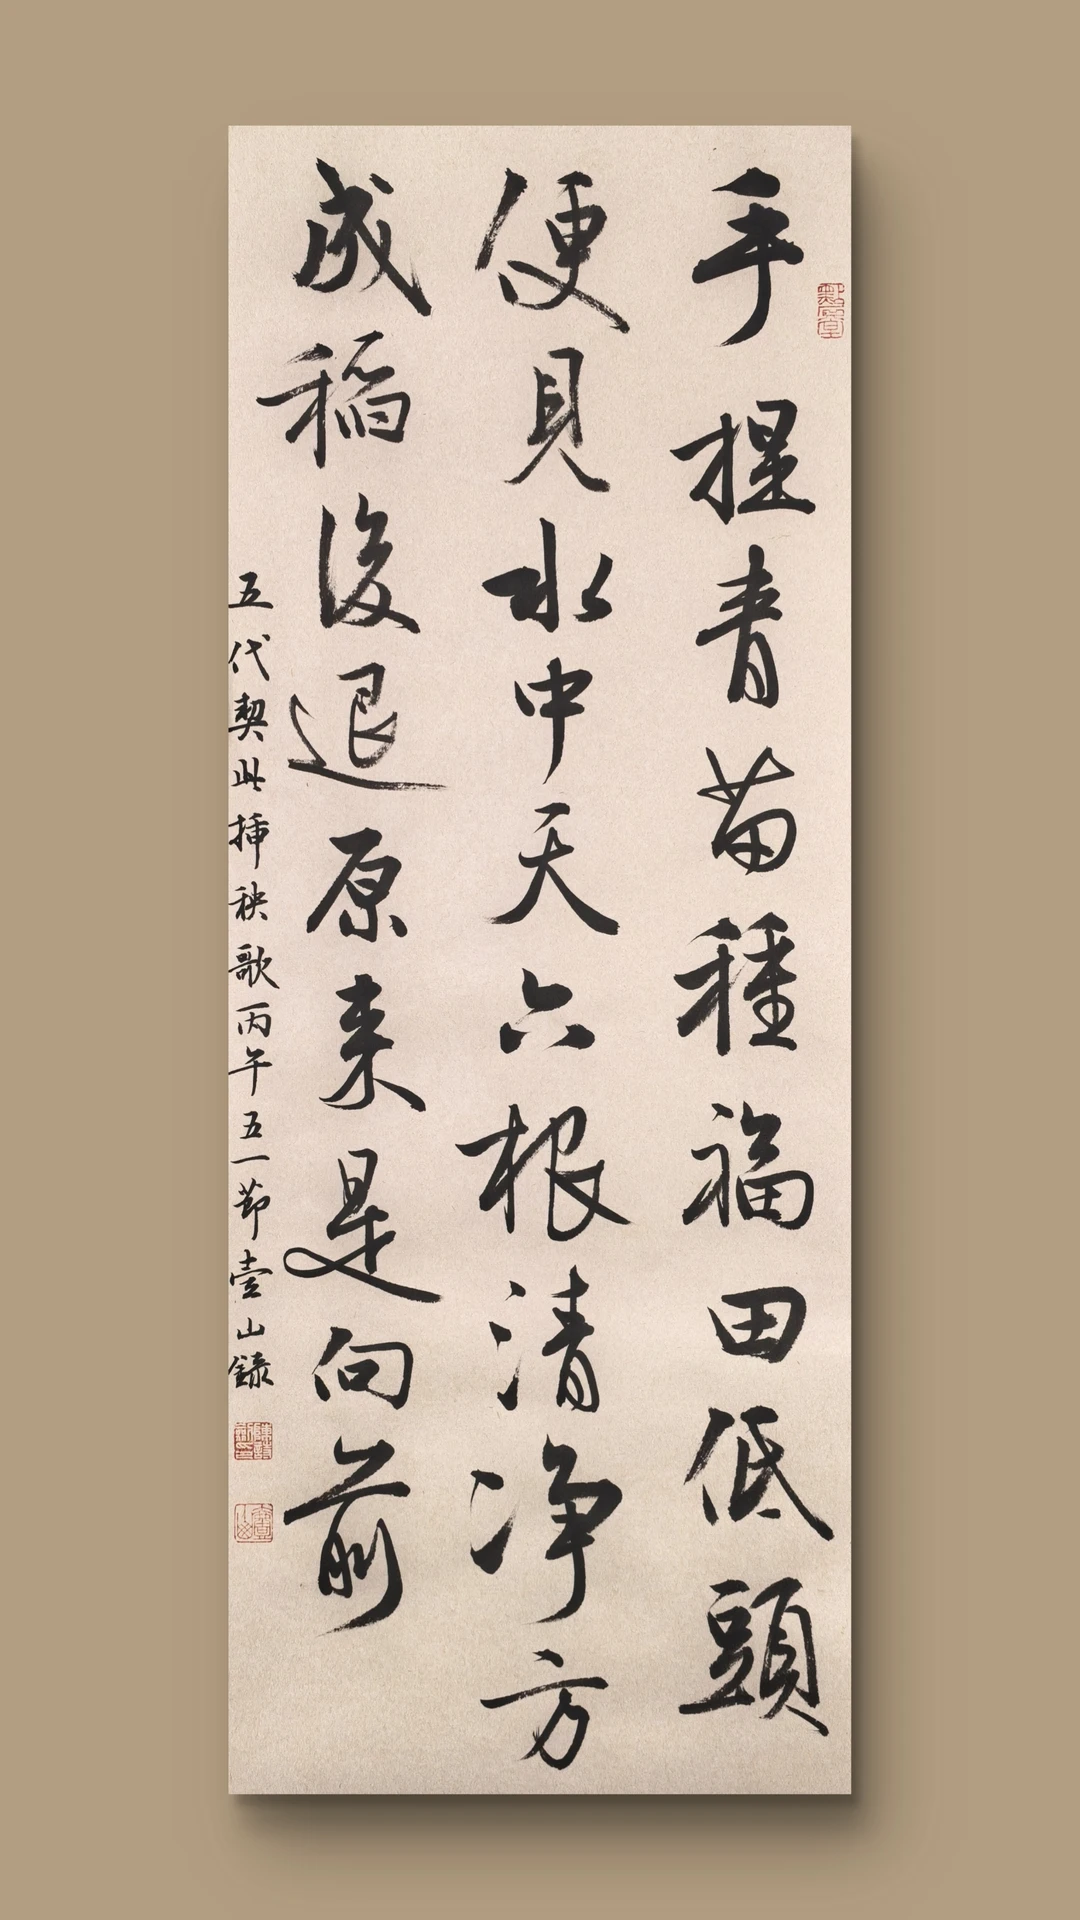 手捏青苗種福田低頭
便見水中天六根清净方
成稻後退原来是向前
五代契此插秧歌丙午五一節壹山録